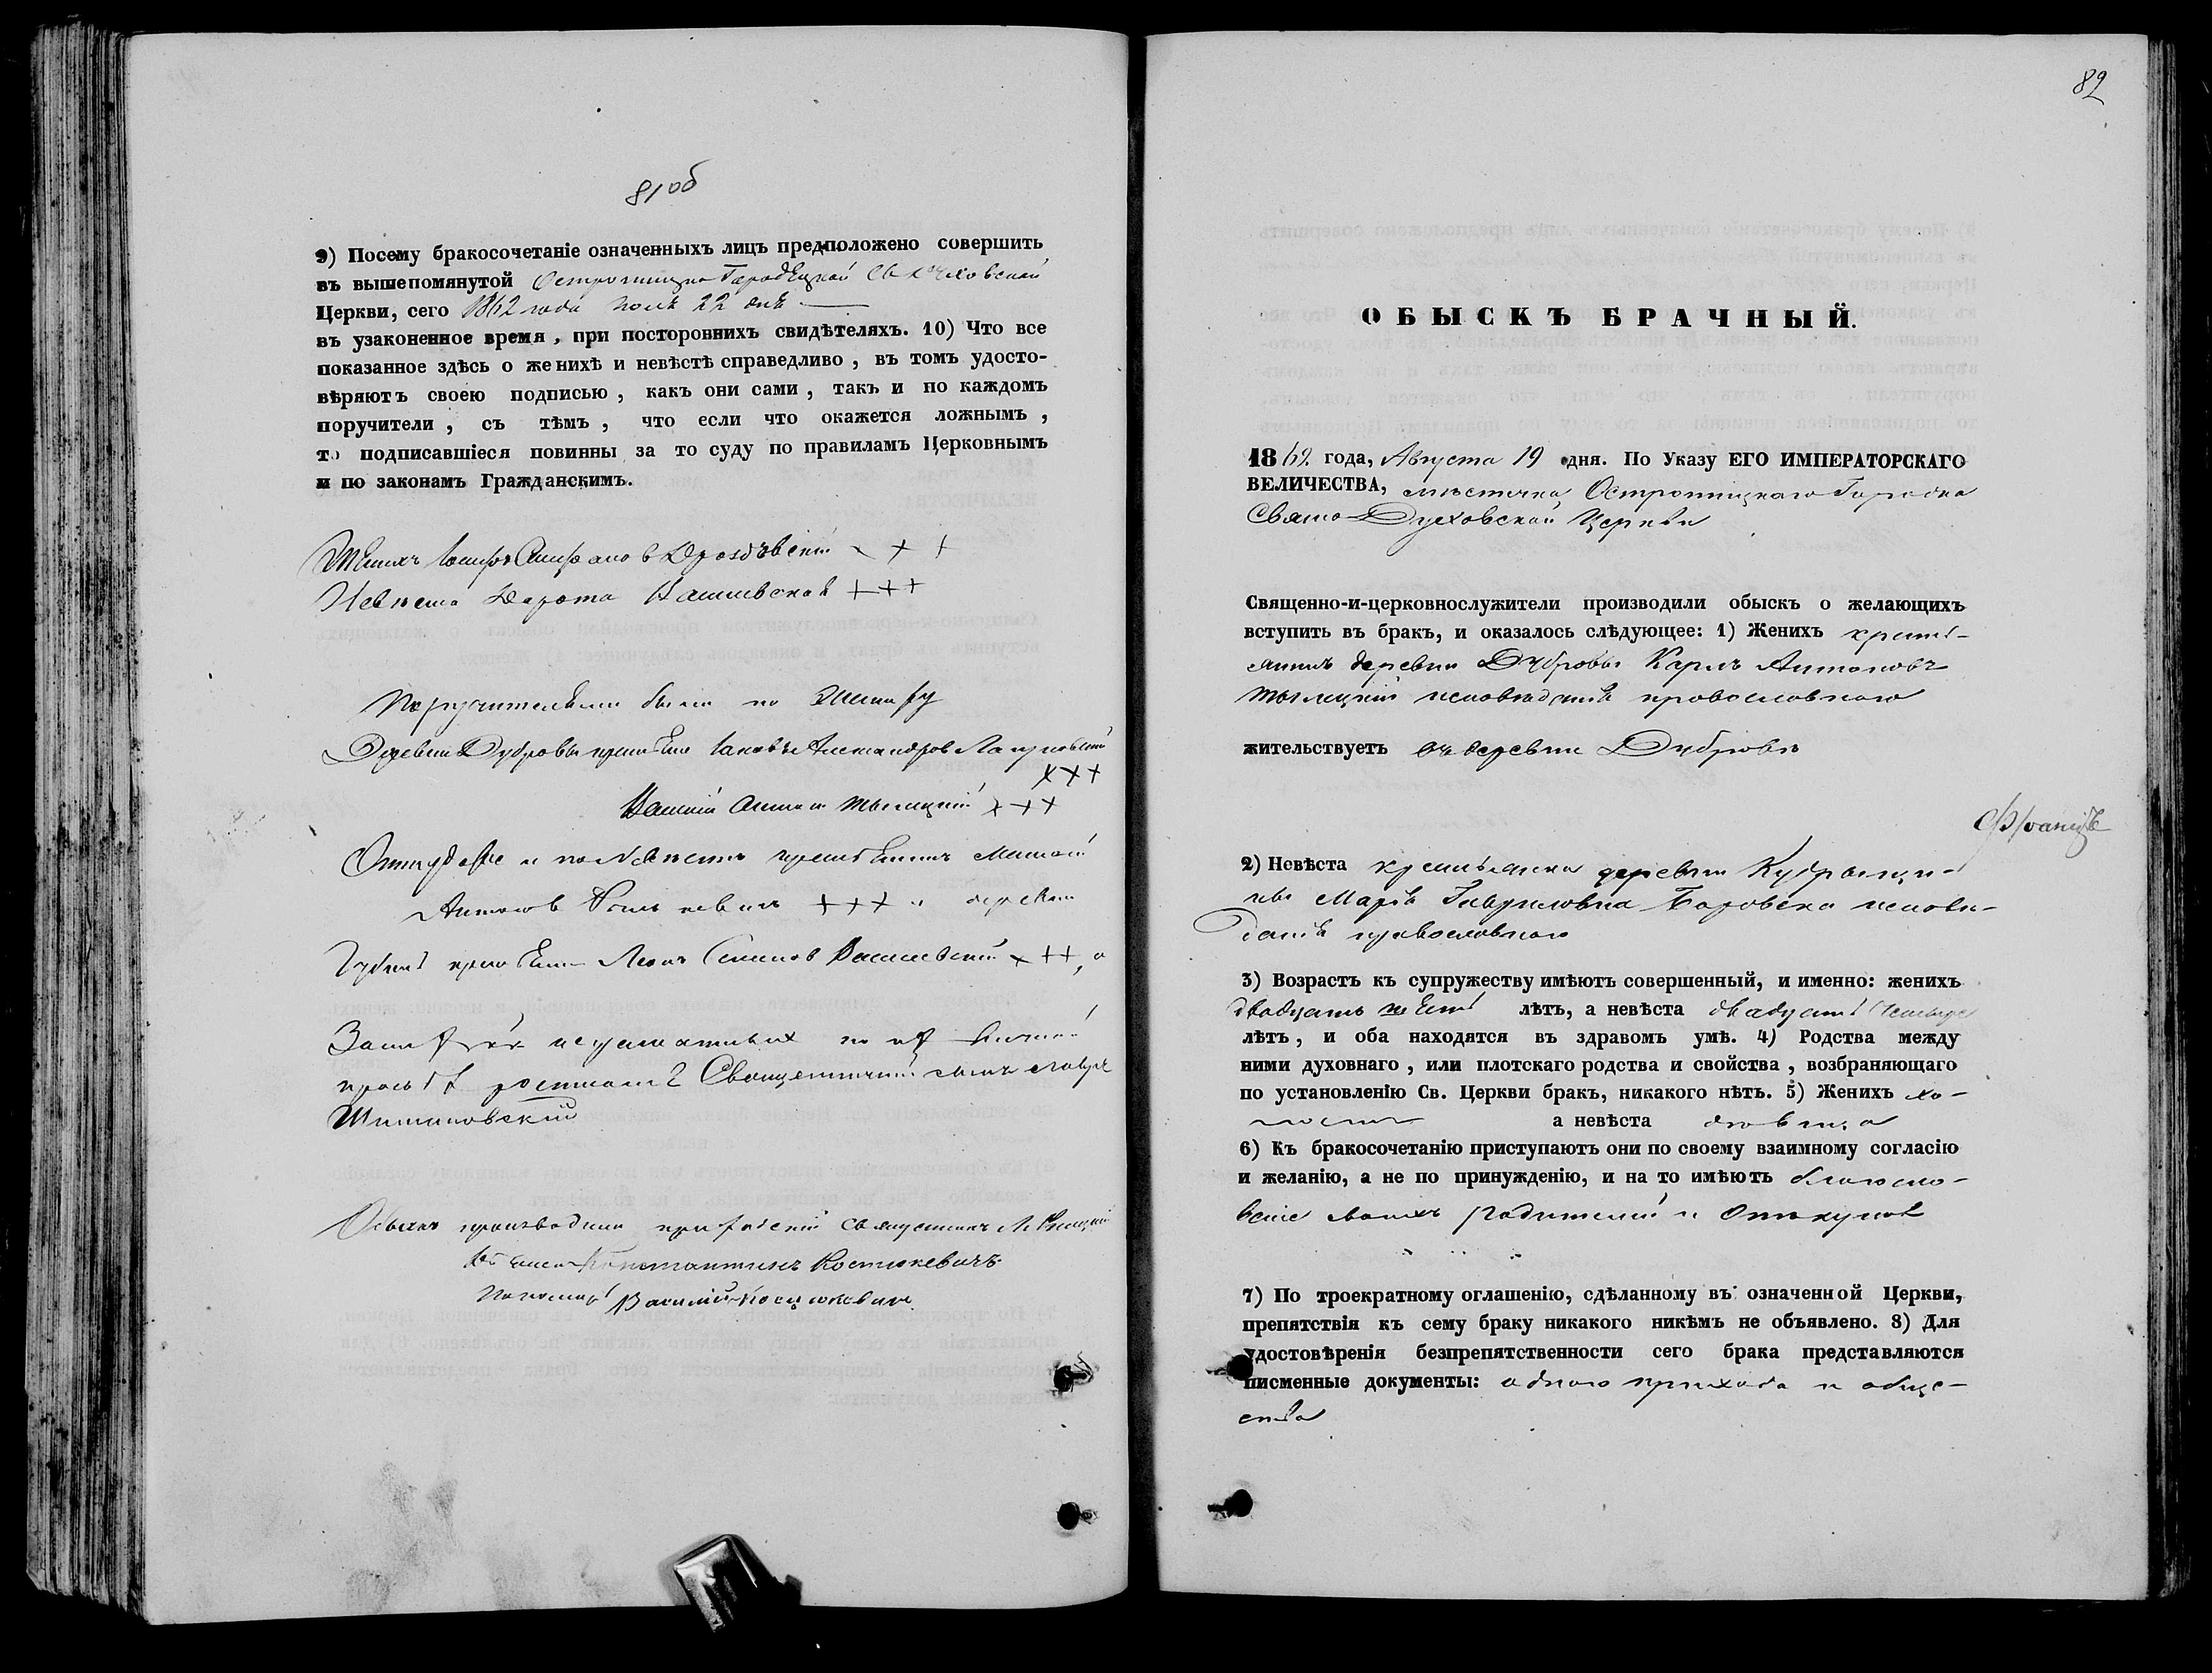 81об
9) Посему бракосочетаніе означенныхъ лицъ предположено совершить
въ вышепомянутой Острошицко Городецкой Св Духовской
Церкви, сего 1862 года 22 дня
въ узаконенное время, при посторовнихъ свидѣтеляхъ. 10) Что все
показанное здѣсь о женихѣ и невѣстѣ справедливо, въ томъ удосто-
вѣряютъ своею подписью, какъ они сами, такъ и по каждомъ
поручители, съ тѣмъ, что если что окажется ложнымъ,
то подписавшіеся повинны за то суду по правиламъ Церковнымъ
и по законамъ Гражданскимъ.
Женихъ Іосифъ Дроздовскій + + +
Невѣста Дарота + + +
Поручителями были по Жениху
Деревни Дубровы Александров
+++
Тылицкій +++
Оттудаже и по Невѣсте
Антонов +++ деревни
Леонъ Семенов Василевскій +++, а
За неграмотных по их личной
Священничий сынъ
Шимановскій
Обыскъ производили приходскій Священникъ
Константинъ Костюкевичъ
Пономарь Василій Косцюкевичъ
82
ОБЫСКЪ БРАЧНЫЙ.
1862 года, Августа 19 дня. По Указу ЕГО ИМПЕРАТОРСКАГО
ВЕЛИЧЕСТВА, мѣстечка Острошицкаго Городка
Свято-Духовской Церкви
Священно-и-церковнослужители производили обыскъ о желающихъ
вступить въ бракъ, и оказалось слѣдующее: 1) Женихъ кресть-
янинъ деревни Дубровы Карлъ Антоновъ
Тылицкій исповѣданія провославнаго
жительствуетъ въ деревни Дубровѣ
2) Невѣста крестьянка деревни
Марія Гавриловна Боровска исповѣ-
данія православнаго
3) Возрастъ къ супружеству имѣютъ совершенный, и именно: женихъ
двадцать шесть лѣтъ, а невѣста двадцать
лѣтъ, и оба находятся въ здравомъ умѣ. 4) Родства между
ними духовнаго, или плотскаго родства и свойства, возбраняющаго
по установленію Св. Церкви бракъ, никакого нѣтъ. 5) Женихъ хо-
лостъ а невѣста дѣвица
6) Къ бракосочетанію приступаютъ они по своему взаимному согласію
и желанію, а не по принужденію, и на то имѣютъ благосло-
веніе своихъ родителей и Опекунов
7) По троекратному оглашенію, сдѣланному въ означенной Церкви,
препятствія къ сему браку никакого никѣмъ не объявлено. 8) Для
удостовѣренія безпрепятственности сего брака представляются
писменные документы: одного прихода и обще-
ства